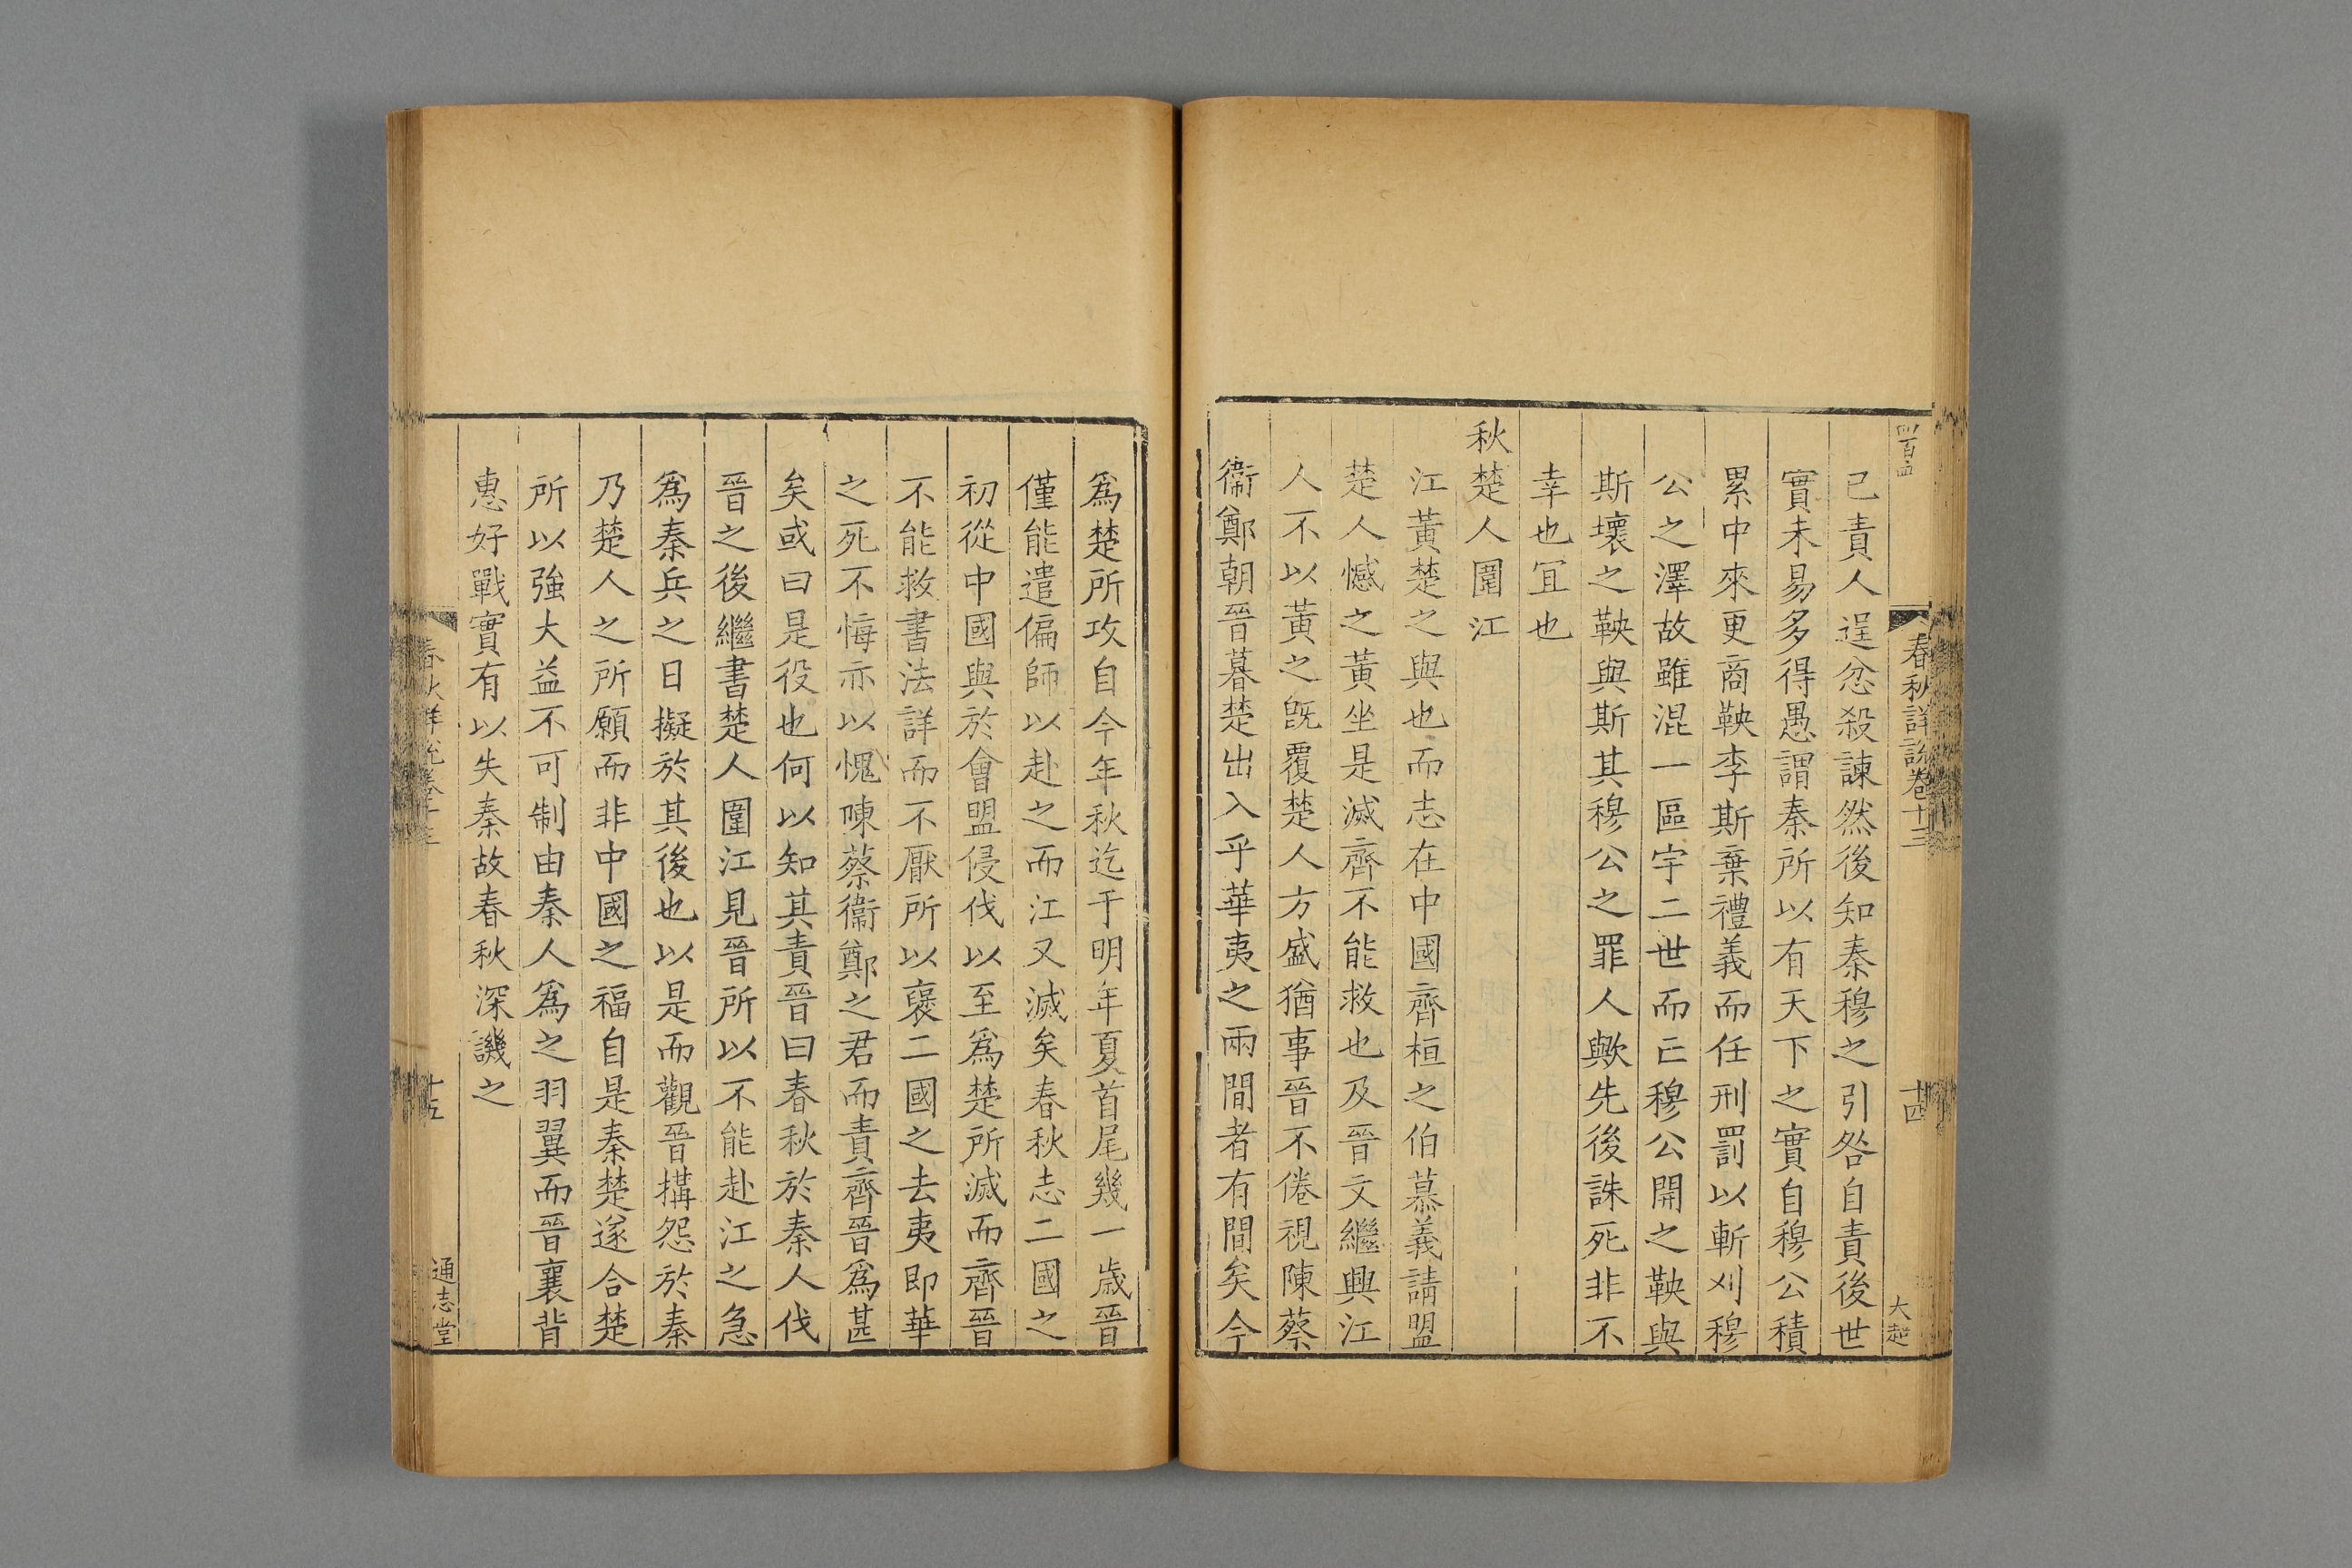 春秋詳說卷十三
十四
大超
己責人逞忿殺諫然後知秦穆之引咎自責後世
實未易多得愚謂秦所以有天下之實自穆公積
累中來更商鞅李斯棄禮義而任刑罰以斬刈穆
公之澤故雖混一區宇二世而亡穆公開之鞅與
斯壞之鞅與斯其穆公之罪人歟先後誅死非不
幸也宜也
秋楚人圍江
江黃楚之與也而志在中國齊桓之伯慕義請盟
楚人憾之黃坐是滅齊不能救也及晉文繼興江
人不以黃之既覆楚人方盛猶事晉不倦視陳蔡
衞鄭朝晉暮楚出入乎華夷之兩間者有間矣今
爲楚所攻自今年秋迄于明年夏首尾幾一歲晉
僅能遣偏師以赴之而江又滅矣春秋志二國之
初從中國與於會盟侵伐以至爲楚所滅而齊晉
不能救書法詳而不厭所以襃二國之去夷即華
之死不悔亦以愧陳蔡衞鄭之君而責齊晉爲甚
矣或曰是役也何以知其責晉曰春秋於秦人伐
晉之後繼書楚人圍江見晉所以不能赴江之急
爲秦兵之日擬於其後也以是而觀晉搆怨於秦
乃楚人之所願而非中國之福自是秦楚遂合楚
所以強大益不可制由秦人爲之羽翼而晉襄背
惠好戰實有以失秦故春秋深譏之
十五
通志堂